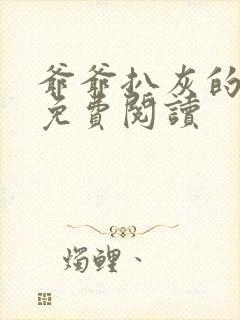 爺爺扒灰的
免費閱讀
燭鯉、